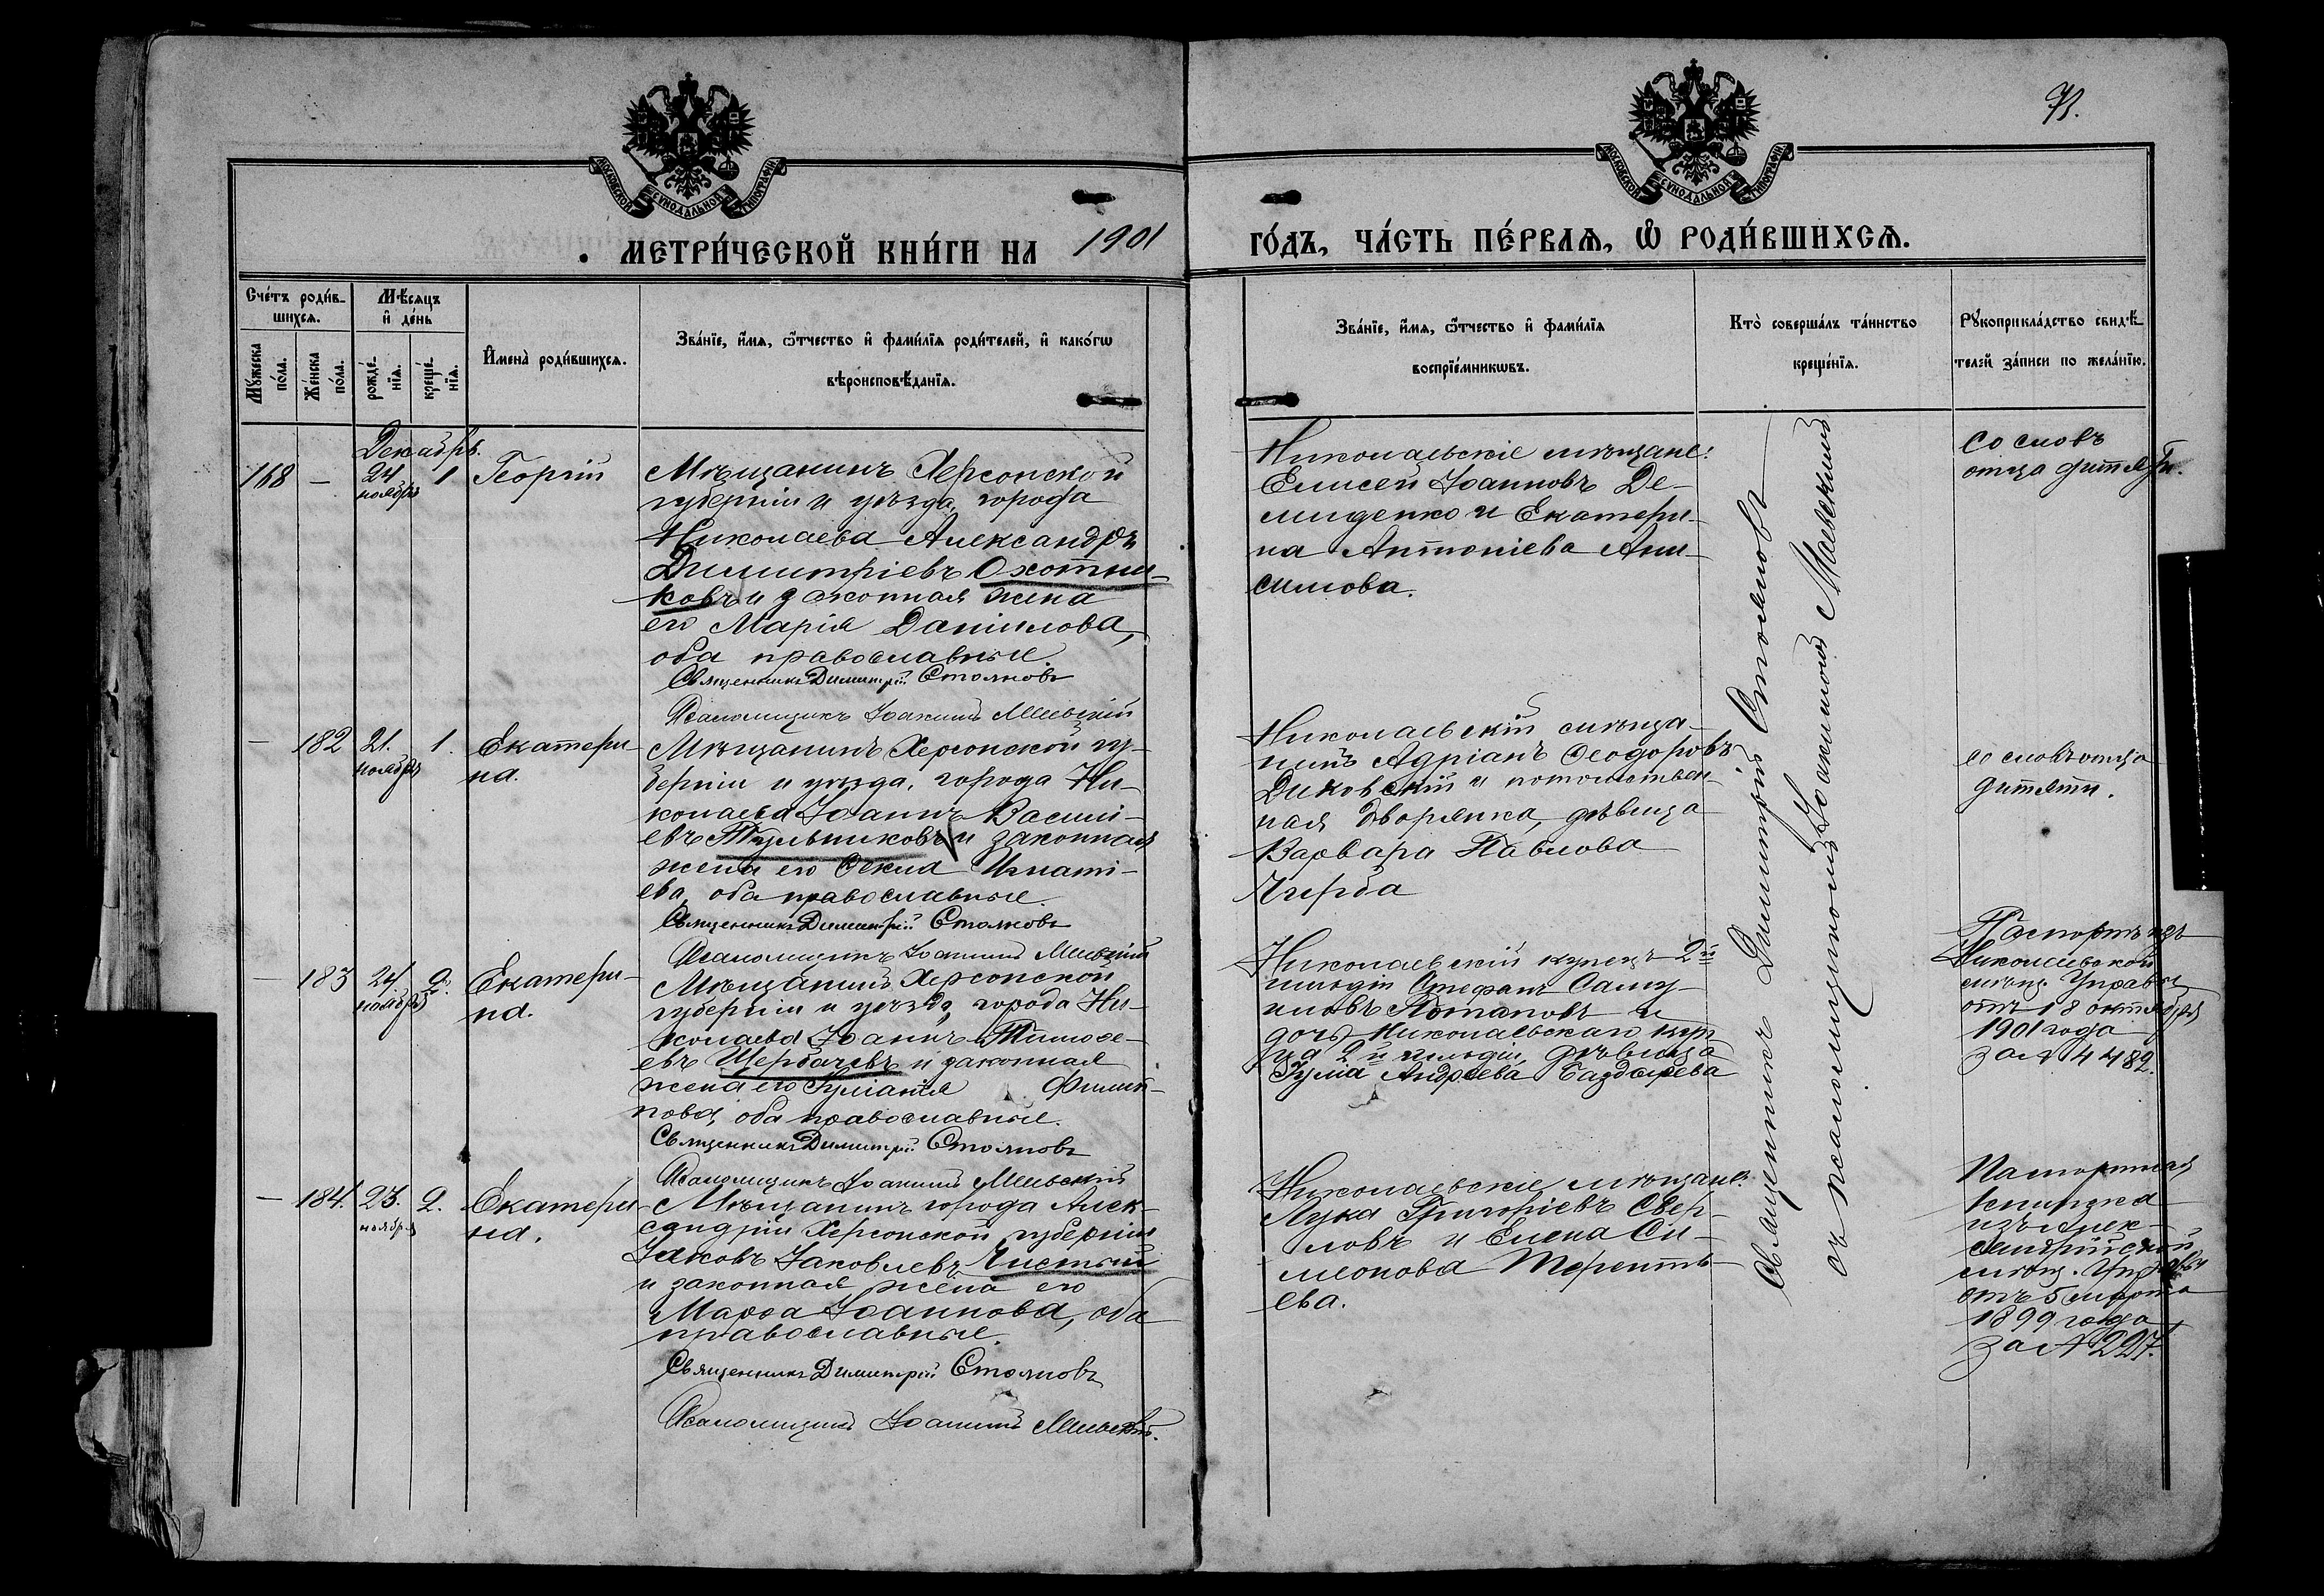 71.
МОСКОВСКОЙ СУНОДАЛЬНОЙ ТИПОГРАФІИ
МОСКОВСКОЙ СУНОДАЛЬНОЙ ТИПОГРАФІИ
МЕТРИ́ЧЕСКОЙ КНИ́ГИ НА 1901
ГО́ДЪ, ЧА́СТЬ ПЕ́РВАѦ, Ѡ҆ РОДИ́ВШИХСѦ.
Сче́тъ роди́в-
шихсѧ.
Мѣ́сѧцъ
и҆ де́нь
Мꙋ́жеска
по́ла.
Же́нска
по́ла.
рожде́-
нїѧ.
креще́-
нїѧ.
И҆мена̀ роди́вшихсѧ.
Зва́нїе, и҆́мѧ, ѻ҆́тчество и҆ фами́лїѧ роди́телей, и҆ како́гѡ
вѣроисповѣ́данїѧ.
Зва́нїе, и҆́мѧ, ѻ҆́тчество и҆ фами́лїѧ
воспрїе́мникѡвъ.
Кто̀ соверша́лъ та́инство
креще́нїѧ.
Рꙋкоприкла́дство свидѣ́-
телей за́писи по жела́нїю.
Декабрь.
168 — 24 ноября 1 Георгій
Мѣщанинъ Херсонской
губерніи и уѣзда, города
Николаева Александръ
Димитріевъ Охотни-
ковъ и законная жена
его Марія Даніилова,
оба православные.
Священникъ Димитрій Стояновъ
Псаломщикъ Іоакимъ Маевскій
Николаевскіе мѣщане:
Елисей Іоанновъ Де-
миденко и Екатери-
на Антоніева Ани-
симова.
со словъ
отца дитяти.
— 182 21. ноября 1. Екатери-
на.
Мѣщанинъ Херсонской гу-
берніи и уѣзда, города Ни-
колаева Іоаннъ Василі-
евъ Тульниковъ и законная
жена его Ѳекла Игнаті-
ева, оба православные.
Священникъ Димитрій Стояновъ
Псаломщикъ Іоакимъ Маевскій
Николаевскій мѣща-
нинъ Адріанъ Ѳеодоровъ
Диковскій и потомствен-
ная дворянка, дѣвица
Варвара Павлова
Чирба
со словъ отца
дитяти.
— 183 24 ноября 2. Екатери-
на.
Мѣщанинъ Херсонской
губерніи и уѣзда, города Ни-
колаева Іоаннъ Тимоѳе-
евъ Щербачевъ и законная
жена его Іуліанія Филип-
пова, оба православные.
Священникъ Димитрій Стояновъ
Псаломщикъ Іоакимъ Маевскій
Николаевскій купецъ 2й
гильдіи Стефанъ Саму-
иловъ Потаповъ и
дочь Николаевскаго куп-
ца 2й гильдіи, дѣвица
Андреева
Паспортъ изъ
Николаевской
мѣщ. Управы
отъ 18 октября
1901 года
за № 4482.
— 184. 23. ноября 2. Екатери-
на.
Мѣщанинъ города Алек-
сандріи Херсонской губерніи
Іаковъ Іаковлевъ Чистый
и законная жена его
Марѳа Іоаннова, оба
православные.
Священникъ Димитрій Стояновъ
Псаломщикъ Іоакимъ Маевскій.
Николаевскіе мѣщане:
Лука Григоріевъ Свер-
ловъ и Елена Си-
меонова Терентъ-
ева.
Паспортная
книжка
изъ Алек-
сандрійской
мѣщ. Управы
отъ 5 марта
1899 года
за № 227.
Священникъ Димитрій Стояновъ
съ псаломщикомъ Іоакимомъ Маевскимъ